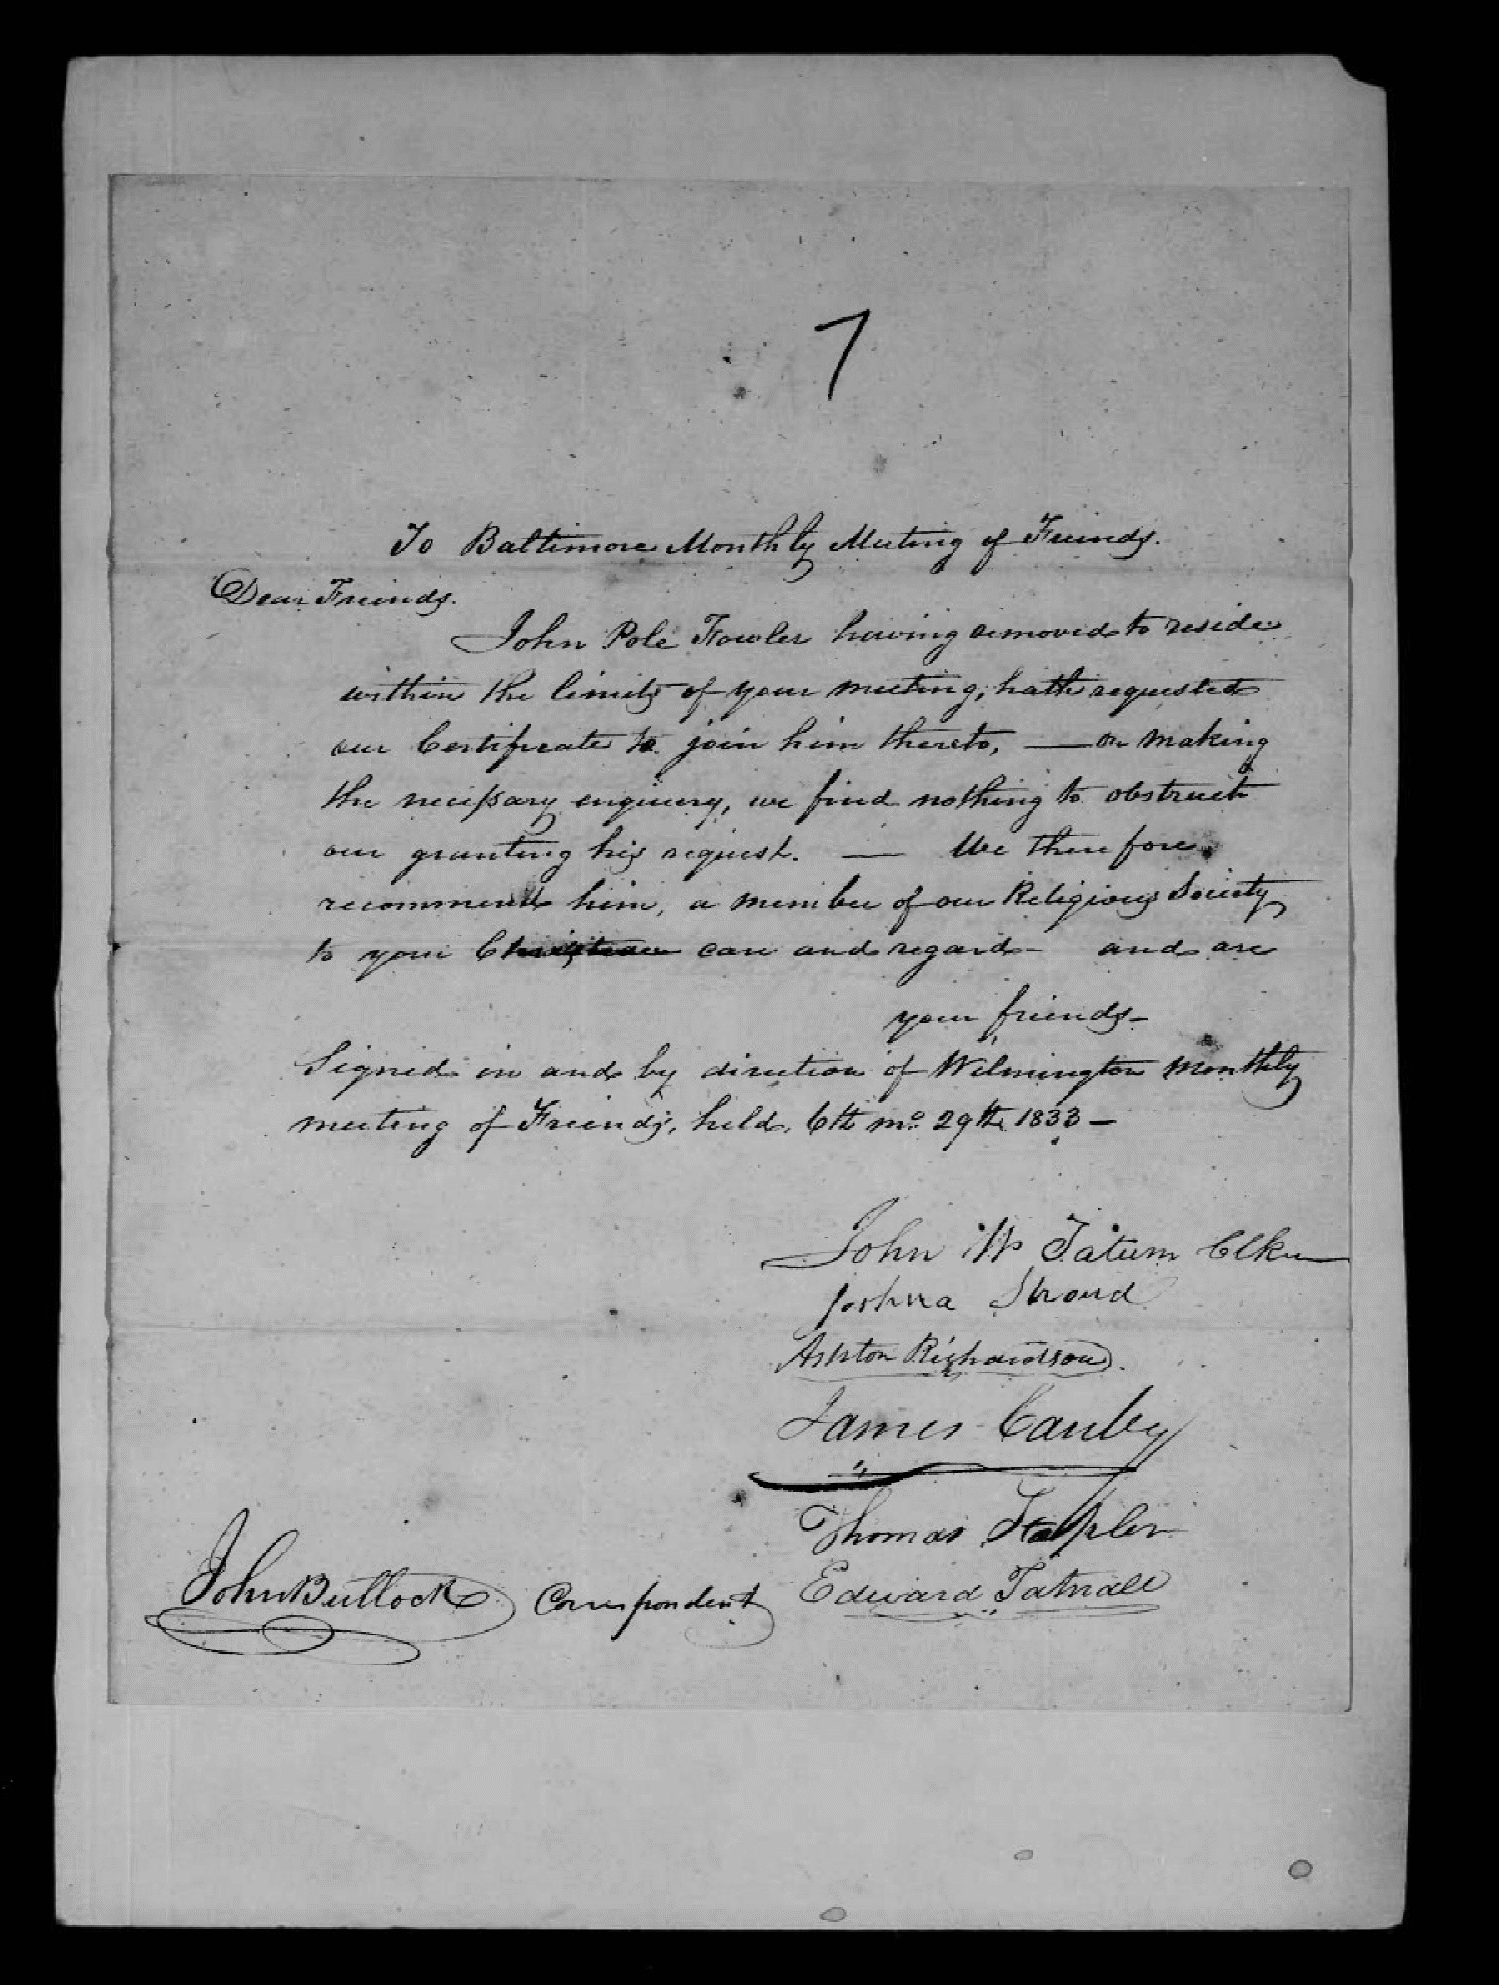 7
To Baltimore Monthly Meeting of Friends.
Dear Friends.
John Pole Fowler having removed to reside
within the limits of your meeting, hath requested
our Certificate to join him thereto, — on making
the necessary enquiery, we find nothing to obstruct
our granting his request. — We therefore
recommend him, a member of our Religious Society
to your Christian care and regard - and are
your friends -
Signed in and by direction of Wilmington monthly
meeting of Friends, held, 6th mo. 29th 1833 -
John W Tatum Clke
Joshua Stroud
Ashton Richardson.
James Canby
Thomas Stapler
John Bullock Correspondent Edward Tatnall